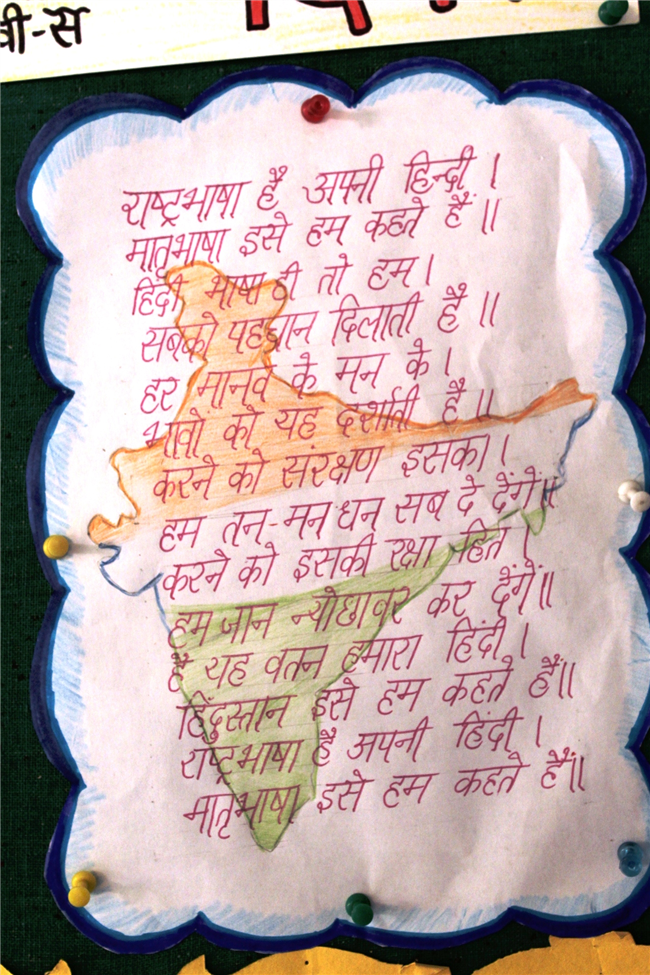 वी-स
राष्ट्रभाषा है अपनी हिन्दी ।
मातृभाषा इसे हम कहते हैं ॥
हिंदी भाषा ही तो हम ।
सबको पहचान दिलाती है ॥
हर मानव के मन के ।
भावों को यह दर्शाती है ॥
करने को संरक्षण इसका ।
हम तन-मन धन सब दे देंगें॥
करने को इसकी रक्षा हित ।
हम जान न्योछावर कर देंगें॥
है यह वतन हमारा हिंदी ।
हिंदुस्तान इसे हम कहते हैं॥
राष्ट्रभाषा है अपनी हिंदी ।
मातृभाषा इसे हम कहते हैं॥